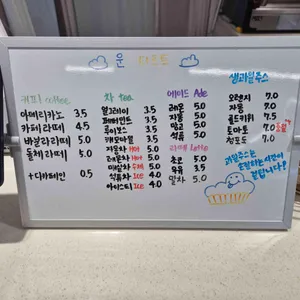 운 디저트
커피 coffee
아메리카노 3.5
카페라떼 4.5
바닐라라떼 5.0
돌체라떼 5.0
+디카페인 0.5
차 tea
얼그레이 3.5
페퍼민트 3.5
루이보스 3.5
캐모마일 3.5
자몽차 Hot 5.0
레몬차 Hot 5.0
매실차 5.0
석류차 Ice 4.0
아이스티 Ice 4.0
에이드 Ade
레몬 5.0
자몽 5.0
청귤 5.0
석류 5.0
라떼 Latte
초코 5.0
우유 3.5
말차 5.0
생과일주스
오렌지 7.0
자몽 7.0
골드키위 7.5
토마토 7.0
청포도 7.0
과일주스는
시간이
걸립니다!